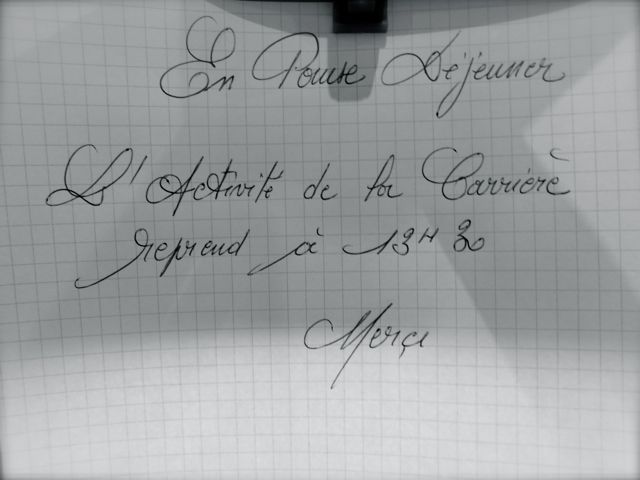 En Pause Déjeuner
L'Activité de la Carrière
reprend à 13H30
Merci